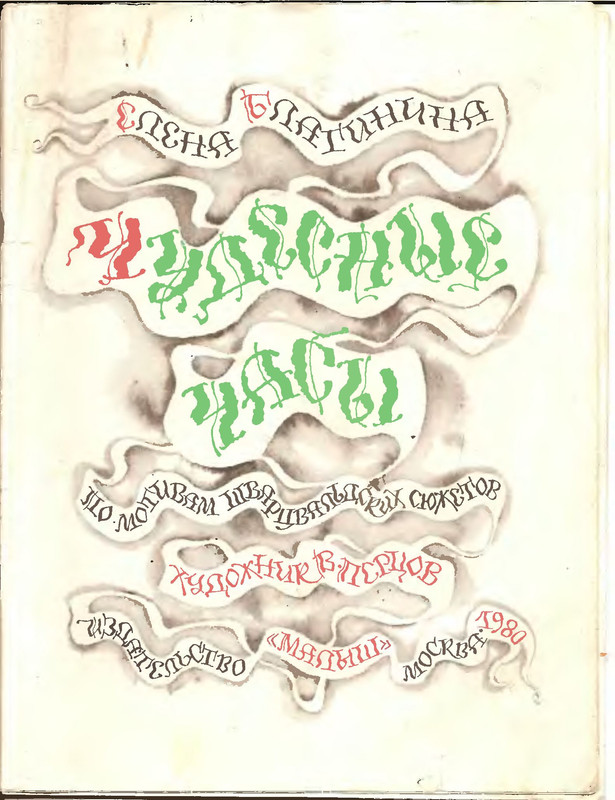 Елена Благинина
Чудесные
часы
По мотивам шварцвальдских сюжетов
Художник В. Перцов
Издательство «Малыш» Москва · 1980